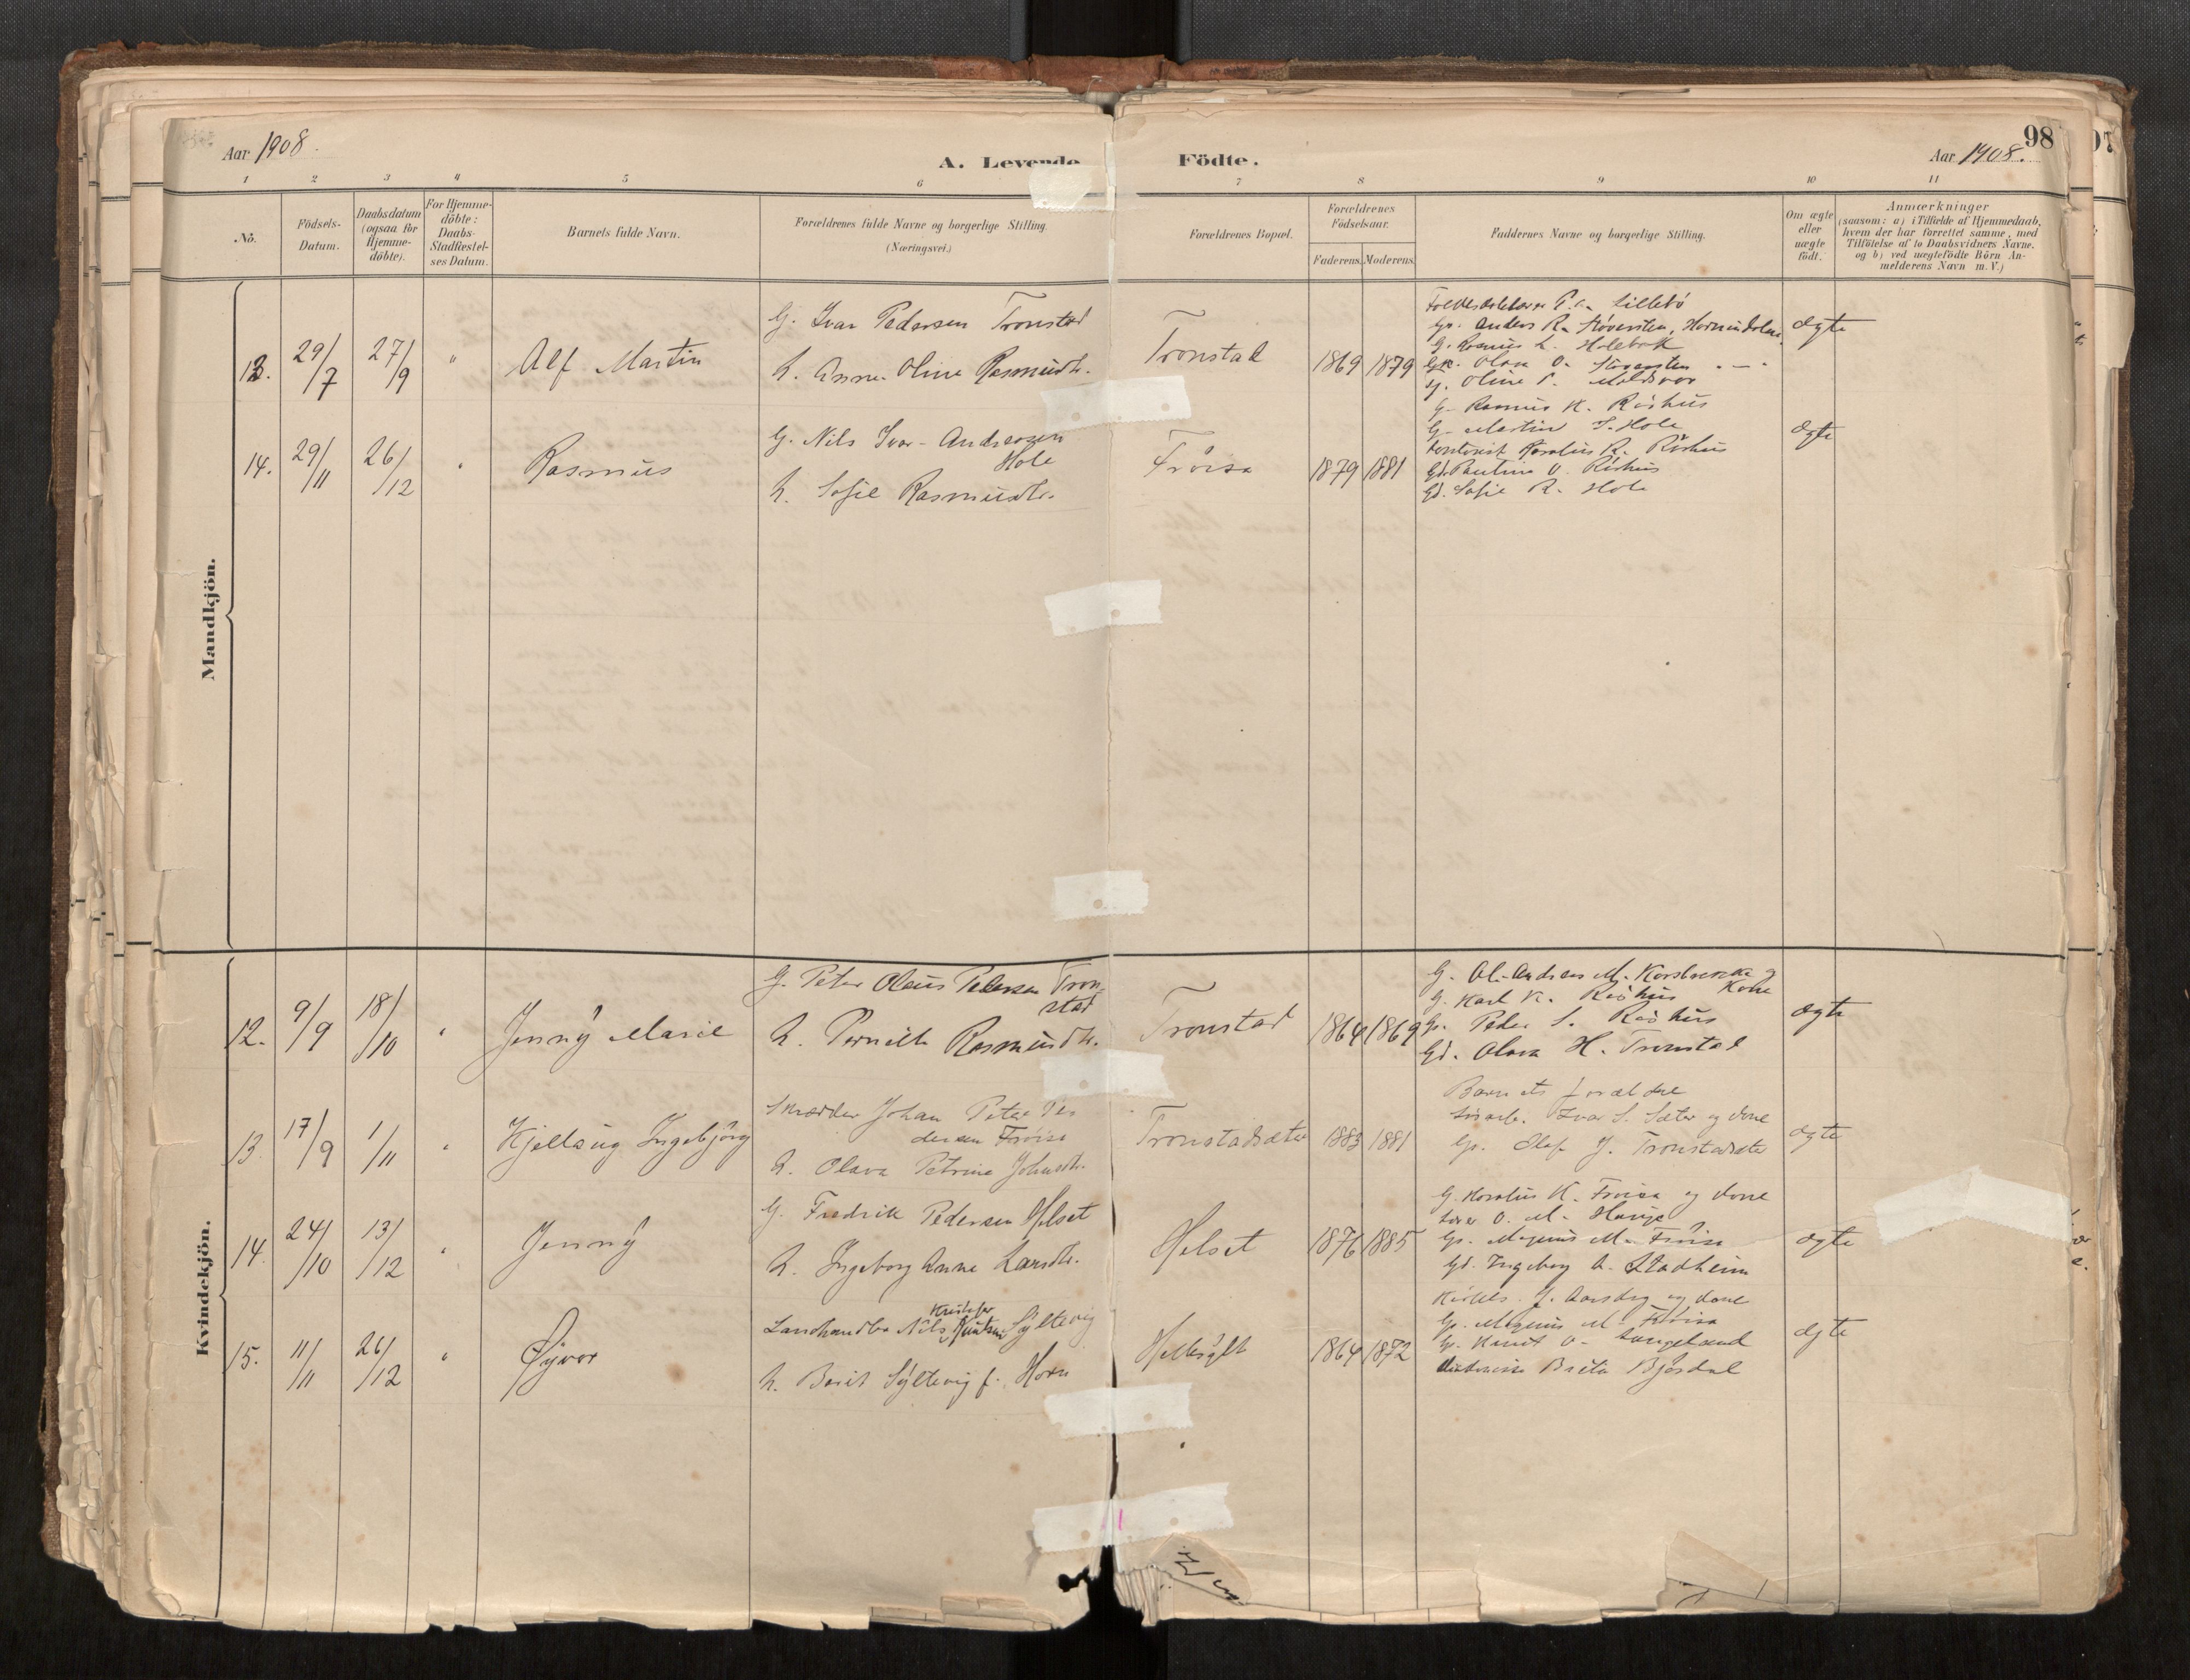 Aar 1908.
A. Levende Födte.
Aar 1908.
98
1 2 3 4 5 6 7 8 9 10 11
No.
Födsels-Datum.
Daabsdatum (ogsaa for Hjemme-döbte).
For Hjemme-döbte: Daabs-Stadfæstel-ses Datum.
Barnets fulde Navn.
Forældrenes fulde Navne og borgerlige Stilling. (Næringsvei.)
Forældrenes Bopæl.
Forældrenes Födselsaar.
Faderens. Moderens.
Faddernes Navne og borgerlige Stilling.
Om ægte eller uægte födt.
Anmærkninger (saasom: a) i Tilfælde af Hjemmedaab, hvem der har forrettet samme, med Tilföielse af to Daabsvidners Navne. og b) ved uægtefödte Börn An-melderens Navn m. V.)
Mandkjön.
13. 29/7 27/9 " Alf Martin
G. Ivar Pedersen Tronstad
h. Anne Oline Rasmusdtr.
Tronstad 1869 1879
P. Lillebö
Gs. Anders R. Støversten, Hornindalen
G. Rasmus L. Holebak
Gk. Olava O. Støversten - " -
Oline P. Moldsvor
ægte
14. 29/11 26/12 " Rasmus
G. Nils Ivar Andreasen Hole
h. Sofie Rasmusdtr.
Fröisa 1879 1881
G. Rasmus K. Röshus
G. Martin S. Hole
Kontorist Karolus R. Röshus
Gd. Pauline O. Röshus
Gd. Sofie R. Hole
ægte
Kvindekjön.
12. 9/9 18/10 " Jenny Marie
G. Peter Olaus Pedersen Tron-stad
h. Pernille Rasmusdtr.
Tronstad 1864 1869
G. Ol. Andreas M. Korsbrekke og Kone
G. Karl K. Röshus
Gs. Peder S. Röshus
Gd. Olava H. Tronstad
ægte
13. 17/9 1/11 " Kjellaug Ingebjörg
Skrædder Johan Peter Pe-dersen Fröisa
h. Olava Petrine Johnsdtr.
Tronstadsæter 1883 1881
Barnets forældre
Ivar S. Sæter og Kone
Gs. Olaf J. Tronstadsæter
ægte
14. 24/10 13/12 " Jenny
G. Fredrik Pedersen Helset
h. Ingeborg Anne Larsdtr.
Helset 1876 1885
G. Karolus K. Fröisa og Kone
O. M. Hauge
Gs. Magnus M. Fröisa
Gd. Ingeborg A. Stadheim
ægte
15. 11/11 26/12 " Øyvor
Landhandler Nils Kristofer Knutsen Syltevig
h. Berit Syltevig f. Horn
Hellesylt 1864 1872
Kirkes. J. Aarsdag og Kone
Gs. Magnus M. Fröisa
Gs. Knut O. Langeland
Brita Bjørdal
ægte